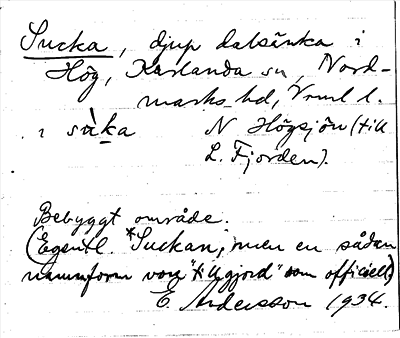 Sucka, djup dalsänka i
Hög, Karlanda sn, Nord-
marks hd, Vrml. l.
i sùka N Högsjön (till
L. Fjorden).
Bebyggt område.
(Egentl. *Suckan, men en sådan
namnform vore "tillgjord" som officiell)
E. Andersson 1934.